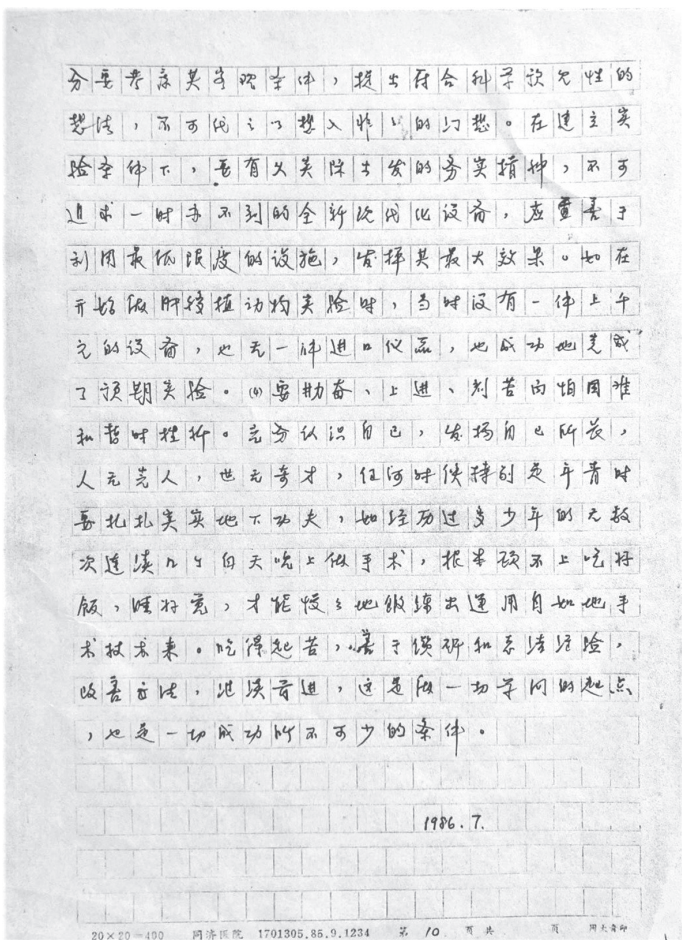 分要考虑其客观条件，提出符合科学预见性的
想法，不可代之以想入非非的幻想。在建立实
验条件下，要有义实际出发的务实精神，不可
追求一时办不到的全新次代化设备，应置善于
利用最低限度的设施，发挥其最大效果。如在
开始做肝移植动物实验时，当时没有一件上千
元的设备，也无一件进口仪器，也成功地完成
了预期实验。(4)要勤奋、上进、刻苦而怕困难
和暂时挫折。充分认识自己，发扬自己所长，
人无完人，世无奇才，任何时候特别是年青时
要扎扎实实地下功夫，如经历过多少年的无数
次连续几个白天晚上做手术，根本顾不上吃好
饭，睡好觉，才能慢々地锻练出运用自如地手
术技术来。吃得起苦，善于钻研和总结经验，
改善方法，继续前进，这是做一切学问的起点
，也是一切成功所不可少的条件。
1986.7.
20×20=400 同济医院 1701305.85.9.1234 第 10 页共 页